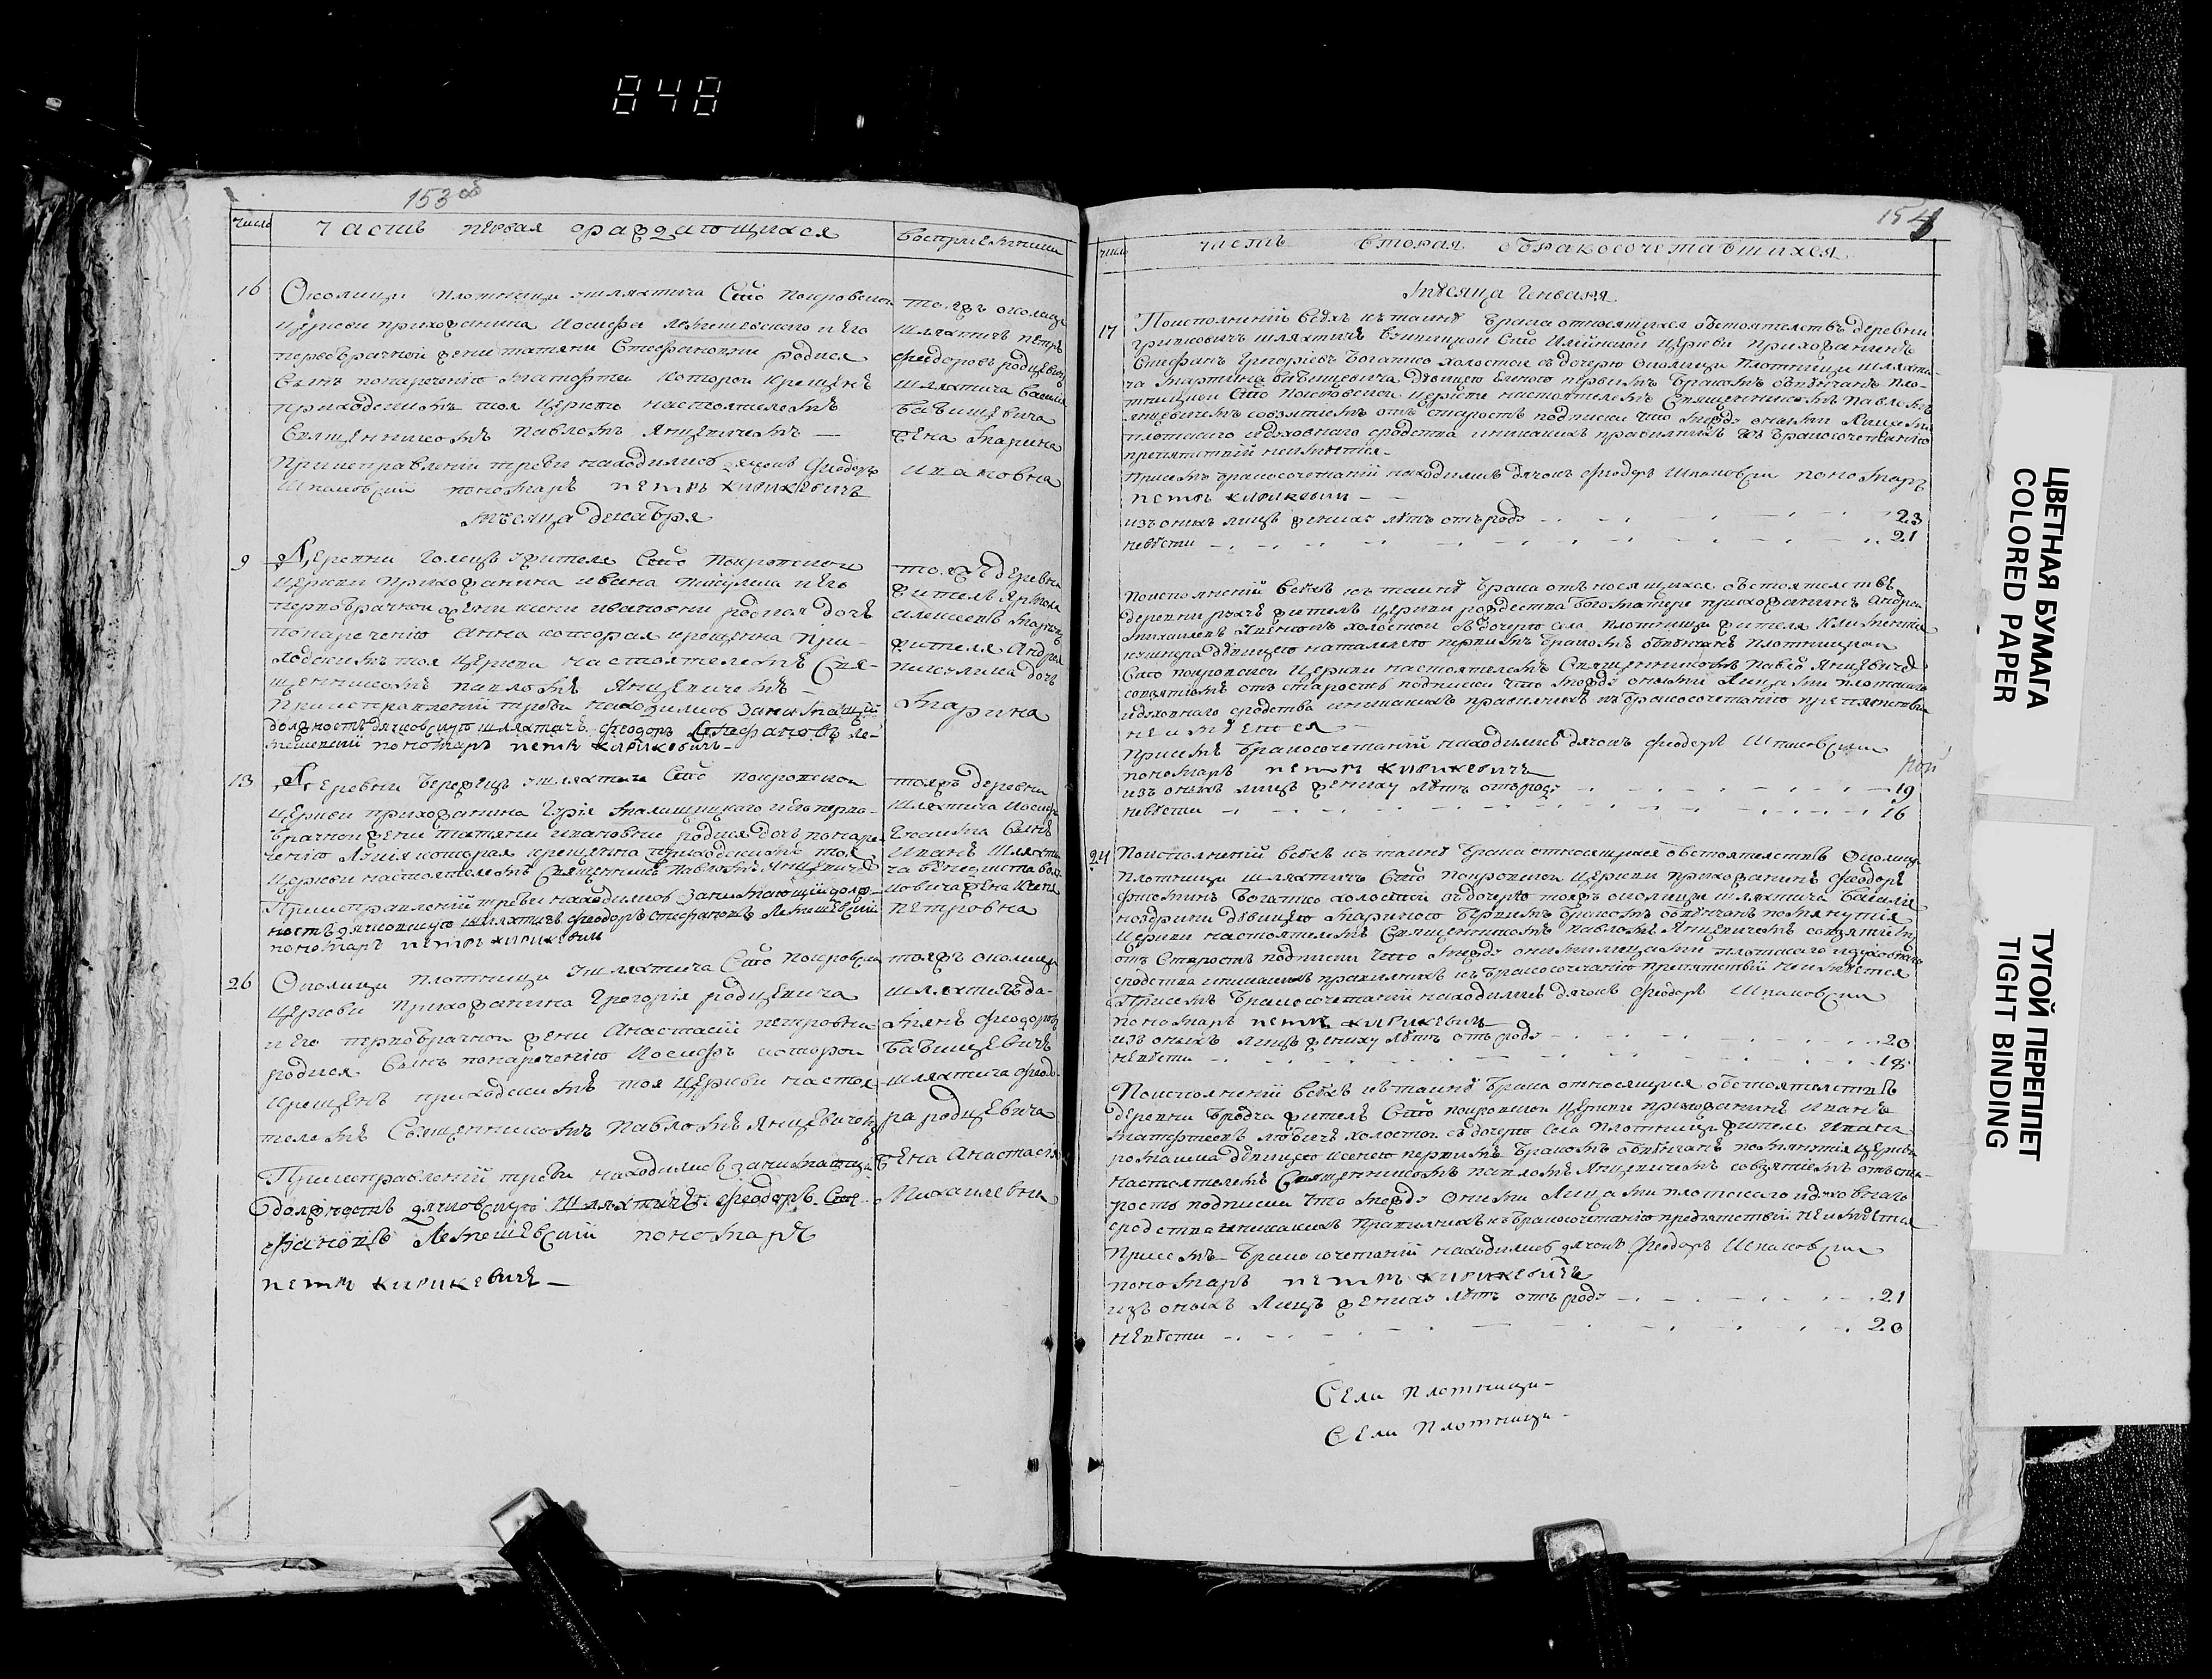 848
153 об
число
Часть первая о раждающихся
Восприемники
16
Околици Плотници шляхтича Сто Покровской
церкви прихожанина Иосифа Лемешевского и его
первобрачной жени татяни Стефановни родися
Сынъ понаречению которой крещенъ
приходскимъ тоя церкви настоятелемъ
Священникомъ Павломъ Янцевичемъ —
При исправлений треби находились дячокъ Феодоръ
Шпаковский пономарь петръ кирикевичъ
тояжъ околици
шляхтичъ петръ
Феодоровъ родцевичъ
шляхтича Василия
Бабицевича
жена Марина
Ивановна
Мѣсяца декабря
9
Деревни Голецъ жителя Сто Покровской
церкви прихожанина ивана и его
первобрачной жени ксени ивановни родися дочь
понаречению Анна которая крещенна при-
ходскимъ тоя церкви настоятелемъ Свя-
щенникомъ павломъ Янцевичемъ —
При исправлений треби находились занимающий
должность дячковскую шляхтичъ Феодоръ Стефановъ Ле-
мешевский пономарь петръ кирикевичъ
тояжъ деревни
житель
алексеевъ
жителя Андрея
дочь
Марина
13
Деревни Бережецъ шляхтича Сто покровской
церкви прихожанина и его перво-
брачной жени татяни ивановни родися дочь понаре-
чению которая крещенна приходскимъ тоя
церкви настоятелемъ Священник Павломъ Янцевичем
При исправлений треби находились занимающий долж-
ность дячковскую шляхтичъ Феодоръ Стефановъ Лемешевский
пономарь петръ кирикевичъ
тояжъ деревни
шляхтича Иосифа
сынъ
Иванъ шляхти-
ча
жена
петровна
26
Околици Плотници шляхтича Сто Покровской
церкви Прихожанина Григория родцевича
и его первобрачной жени Анастасий петровни
родися Сынъ понаречению Иосифъ которой
крещенъ приходскимъ тоя церкви настоя-
телемъ Священникомъ Павломъ Янцевичемъ
При исправлений треби находились занимающий
должность дячковскую шляхтичъ Феодоръ Сте-
фановъ Лемешевский пономарь
петръ кирикевичъ —
тояжъ околици
шляхтичъ да-
міянъ Феодоровъ
Бабицевичъ
шляхтича Феодо-
ра родцевича
жена Анастасія
Михаилевна
154
число
часть вторая о бракосочетавшихся
Мѣсяца Генваря
17
Поисполнений всѣхъ къ таинѣ брака относящихся обстоятелствъ деревни
шляхтичъ церкви прихожанинъ
Стефанъ Григориевъ Богатко холостой съ дочерю Околици Плотници шляхти-
ча Мартина Бабицевича дѣвицею Еленою первимъ бракомъ обвѣнчанъ Пло-
тницкой Сто Покровской церкви настоятелемъ Священникомъ Павломъ
Янцевичемъ совзятиемъ отъ старость подписки что между оними Лицами
плотскаго и духовнаго сродства иникакихъ правилнихъ къ бракосочетанию
препятствий неимѣется —
Присемъ бракосочетаний находились дячокъ Феодоръ Шпаковски пономарь
петръ кирикевич —
изъ онихъ лицъ жениху лѣтъ отъ роду 23
невѣсти 21
Поисполнений всѣхъ къ таинѣ брака относящихся обстоятелствъ
деревни житель церкви рождества богоматере прихожанинъ Андрей
Михаилевъ холостой съ дочерю села плотници жителя Климентия
дѣвицею наталиею первимъ бракомъ обвѣнчанъ плотницкой
Сто покровской церкви настоятелемъ Священникомъ Павло Янцевичем
совзятиемъ отъ старость подписки что между оними Лицами плотскаго
и духовнаго сродства иникакихъ правилнихъ къ бракосочетанию препятствия
неимѣется
Присемъ бракосочетаний находились дячокъ Феодоръ Шпаковский
пономарь петръ кирикевичъ
изъ онихъ лицъ жениху лѣтъ отроду 19
невѣсти 16
24
Поисполнений всѣхъ къ таинѣ брака относящихся обстоятелствъ Околици
Плотници шляхтичъ Сто покровской церкви прихожанинъ Феодоръ
Богатко холостой съ дочерю тояжъ околици шляхтича Василия
дѣвицею Мариною первимъ бракомъ обвѣнчанъ помянутия
церкви настоятелемъ Священникомъ Павломъ Янцевичемъ совзятиемъ
отъ Старость подписки что между оними лицами плотскаго идуховнаго
сродства иникакихъ правилнихъ къ бракосочетанию препятствий неимѣется
Присемъ бракосочетаний находились дячокъ Феодоръ Шпаковски
пономарь петръ кирикевичъ
изъ онихъ лицъ жениху лѣтъ отъ роду 20
невѣсти 18
Поисполнений всѣхъ къ таинѣ брака относящихся обстоятелствъ
деревни житель Сто покровской церкви прихожанинъ Иванъ
холостой съ дочерю Села Плотници жителя Ивана
дѣвицею Ксениею первимъ бракомъ обвѣнчанъ помянутия церкви
настоятелемъ Священникомъ павломъ Янцевичемъ совзятиемъ отъ ста-
рость подписки что между Оними Лицами плотскаго идуховнаго
сродства иникакихъ правилнихъ къ бракосочетанию препятствий неимѣется
Присемъ бракосочетаний находились дячокъ Феодоръ Шпаковски
пономарь петръ кирикевичъ
изъ онихъ Лицъ жениху лѣтъ отъ роду 21
невѣсти 20
Села Плотници —
Села Плотници —
ЦВЕТНАЯ БУМАГА
COLORED PAPER
ТУГОЙ ПЕРЕПЛЕТ
TIGHT BINDING